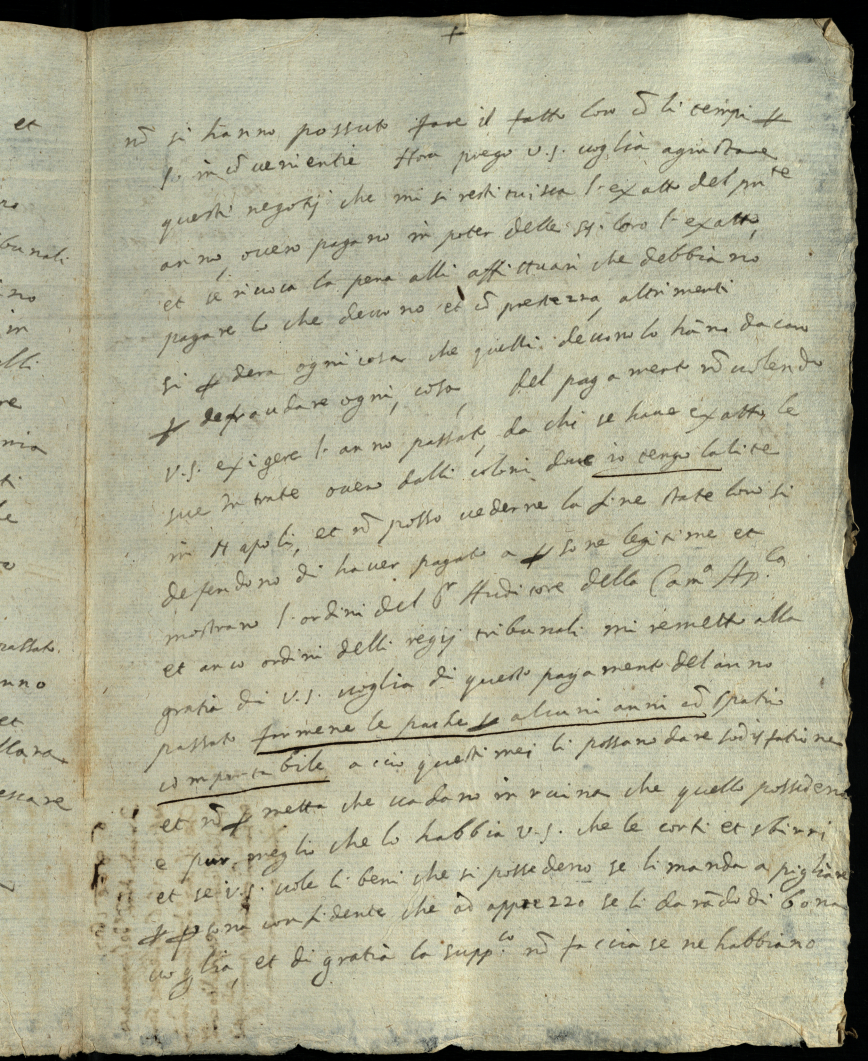 et
nõ si hãnno possuto fare il fatto loro cõ li tempi
l'incõvenientie Hora priego V.S. voglia agiustare
questi negotij che mi si restituisca l'exatto del pnte
anno, overo pagano in poter delle SS. loro l'exatto,
et se rivoca la pena alli affittuari che debbiano
pagare lo che devono et cõ prestezza, altrimenti
si ꝑdera ogni cosa che quelli devono lo hãno da caro
ꝑ defraudare ogni, cosa, del pagamento nõ volendo
V.S. exigere l'anno passato, da chi se have exatto, le
sue intrate overo dalli coloni dove io tengo la lite
in Napoli, et nõ posso vederne la fine state loro si
defendono di haver pagato a ꝑsone legitime et
mostrano l'ordini del Auditore della Camᵃ Apᶜᵃ
et anco ordini delli regij tribunali mi remetto alla
gratia di V.S. voglia di questo pagamento del anno
passato farmene le pache ꝑ alcuni anni cõ spatio
comportabile a ciò questi mei li possano dare sodisfatione
et nõ ꝑmetta che vadano in ruina che quello possideno
e pur, meglio che lo habbia V.S. che le corti et sbirri
et se V.S. vole li beni che si possedeno se li manda a pigliare
ꝑ ꝑsona confidente che ad apprezzo se li darãdo di bona
voglia, et di gratia la suppᶜᵒ nõ faccia se ne habbiano
bunali
no
in
alli
re
ti
le
passato
anno
et